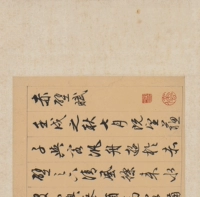 赤壁賦
壬戌之秋七月既望蘇
子與客泛舟遊於赤
壁之下清風徐來水